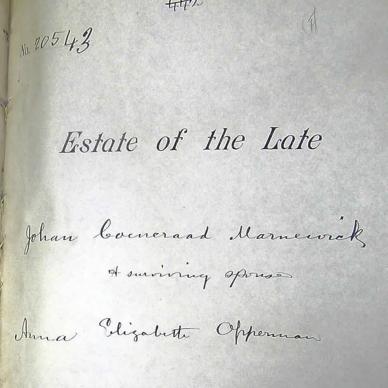 No. 20543
Estate of the Late
Johan Coeneraad Marnewick
& surviving spouse
Anna Elizabeth Opperman